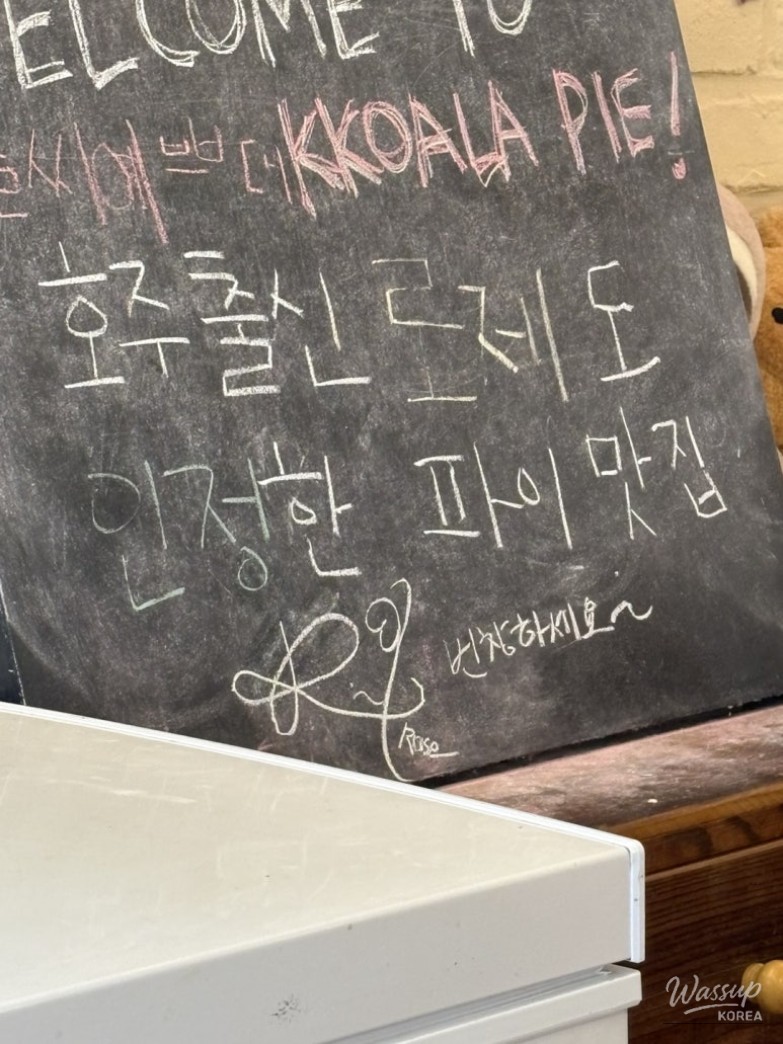 WELCOME TO
글씨예쁜데 KKOALA PIE!
호주출신 로제도
인정한 파이맛집
번창하세요~
Rose
Wassup
KOREA